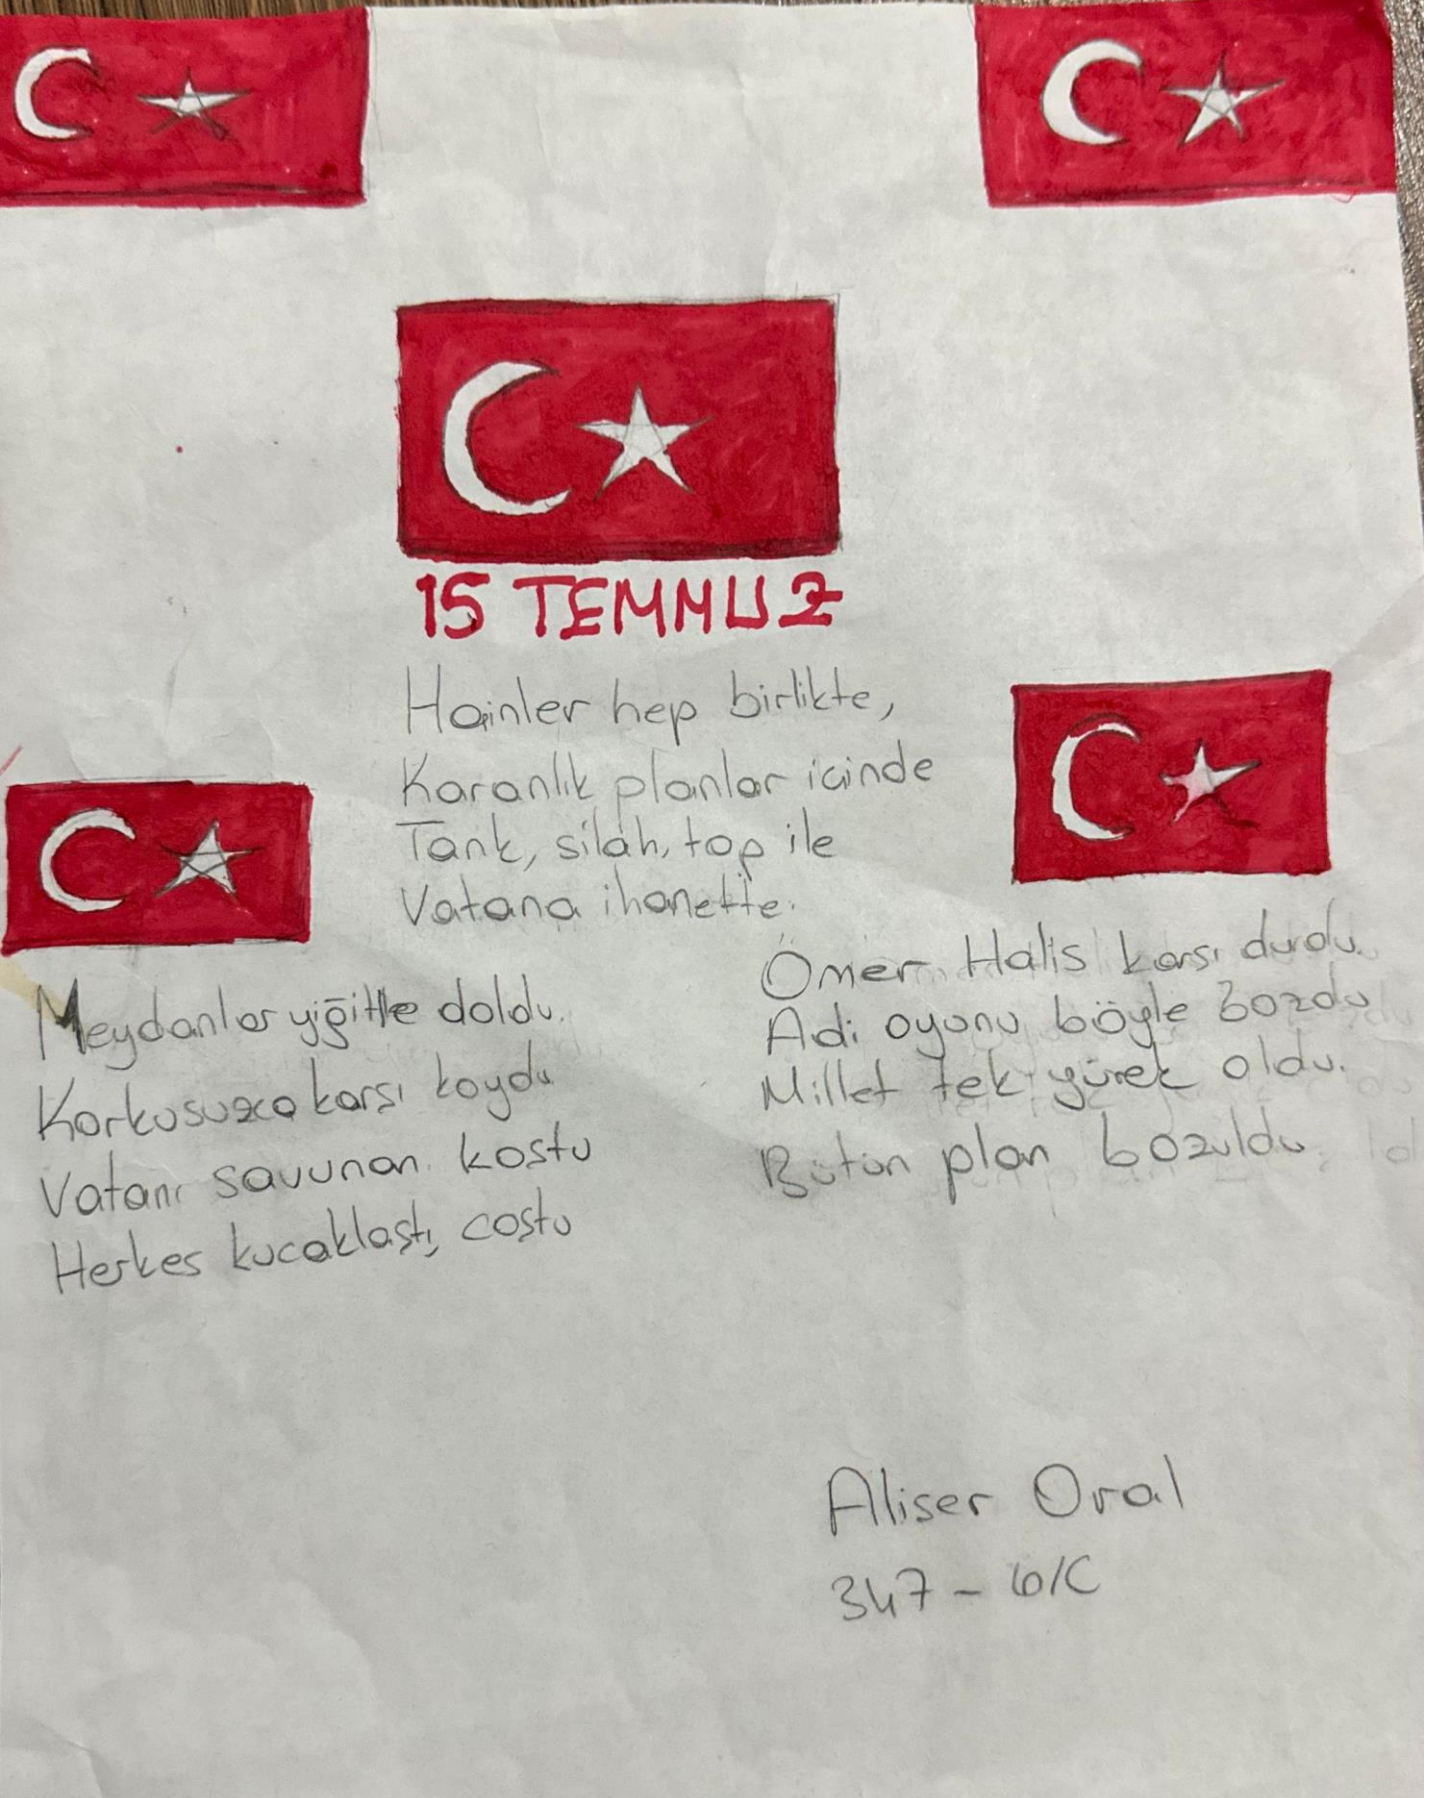 15 TEMMUZ
Hainler hep birlikte,
Karanlık planlar icinde
Tank, silah, top ile
Vatana ihanette.
Meydanlar yiğitle doldu.
Korkusuzca karsı koydu
Vatanı savunan kostu
Herkes kucaklastı, costu
Ömer Halis karsı durdu.
Adi oyunu böyle bozdu
Millet tek yürek oldu.
Bütün plan bozuldu.
Aliser Oral
347 - 6/C